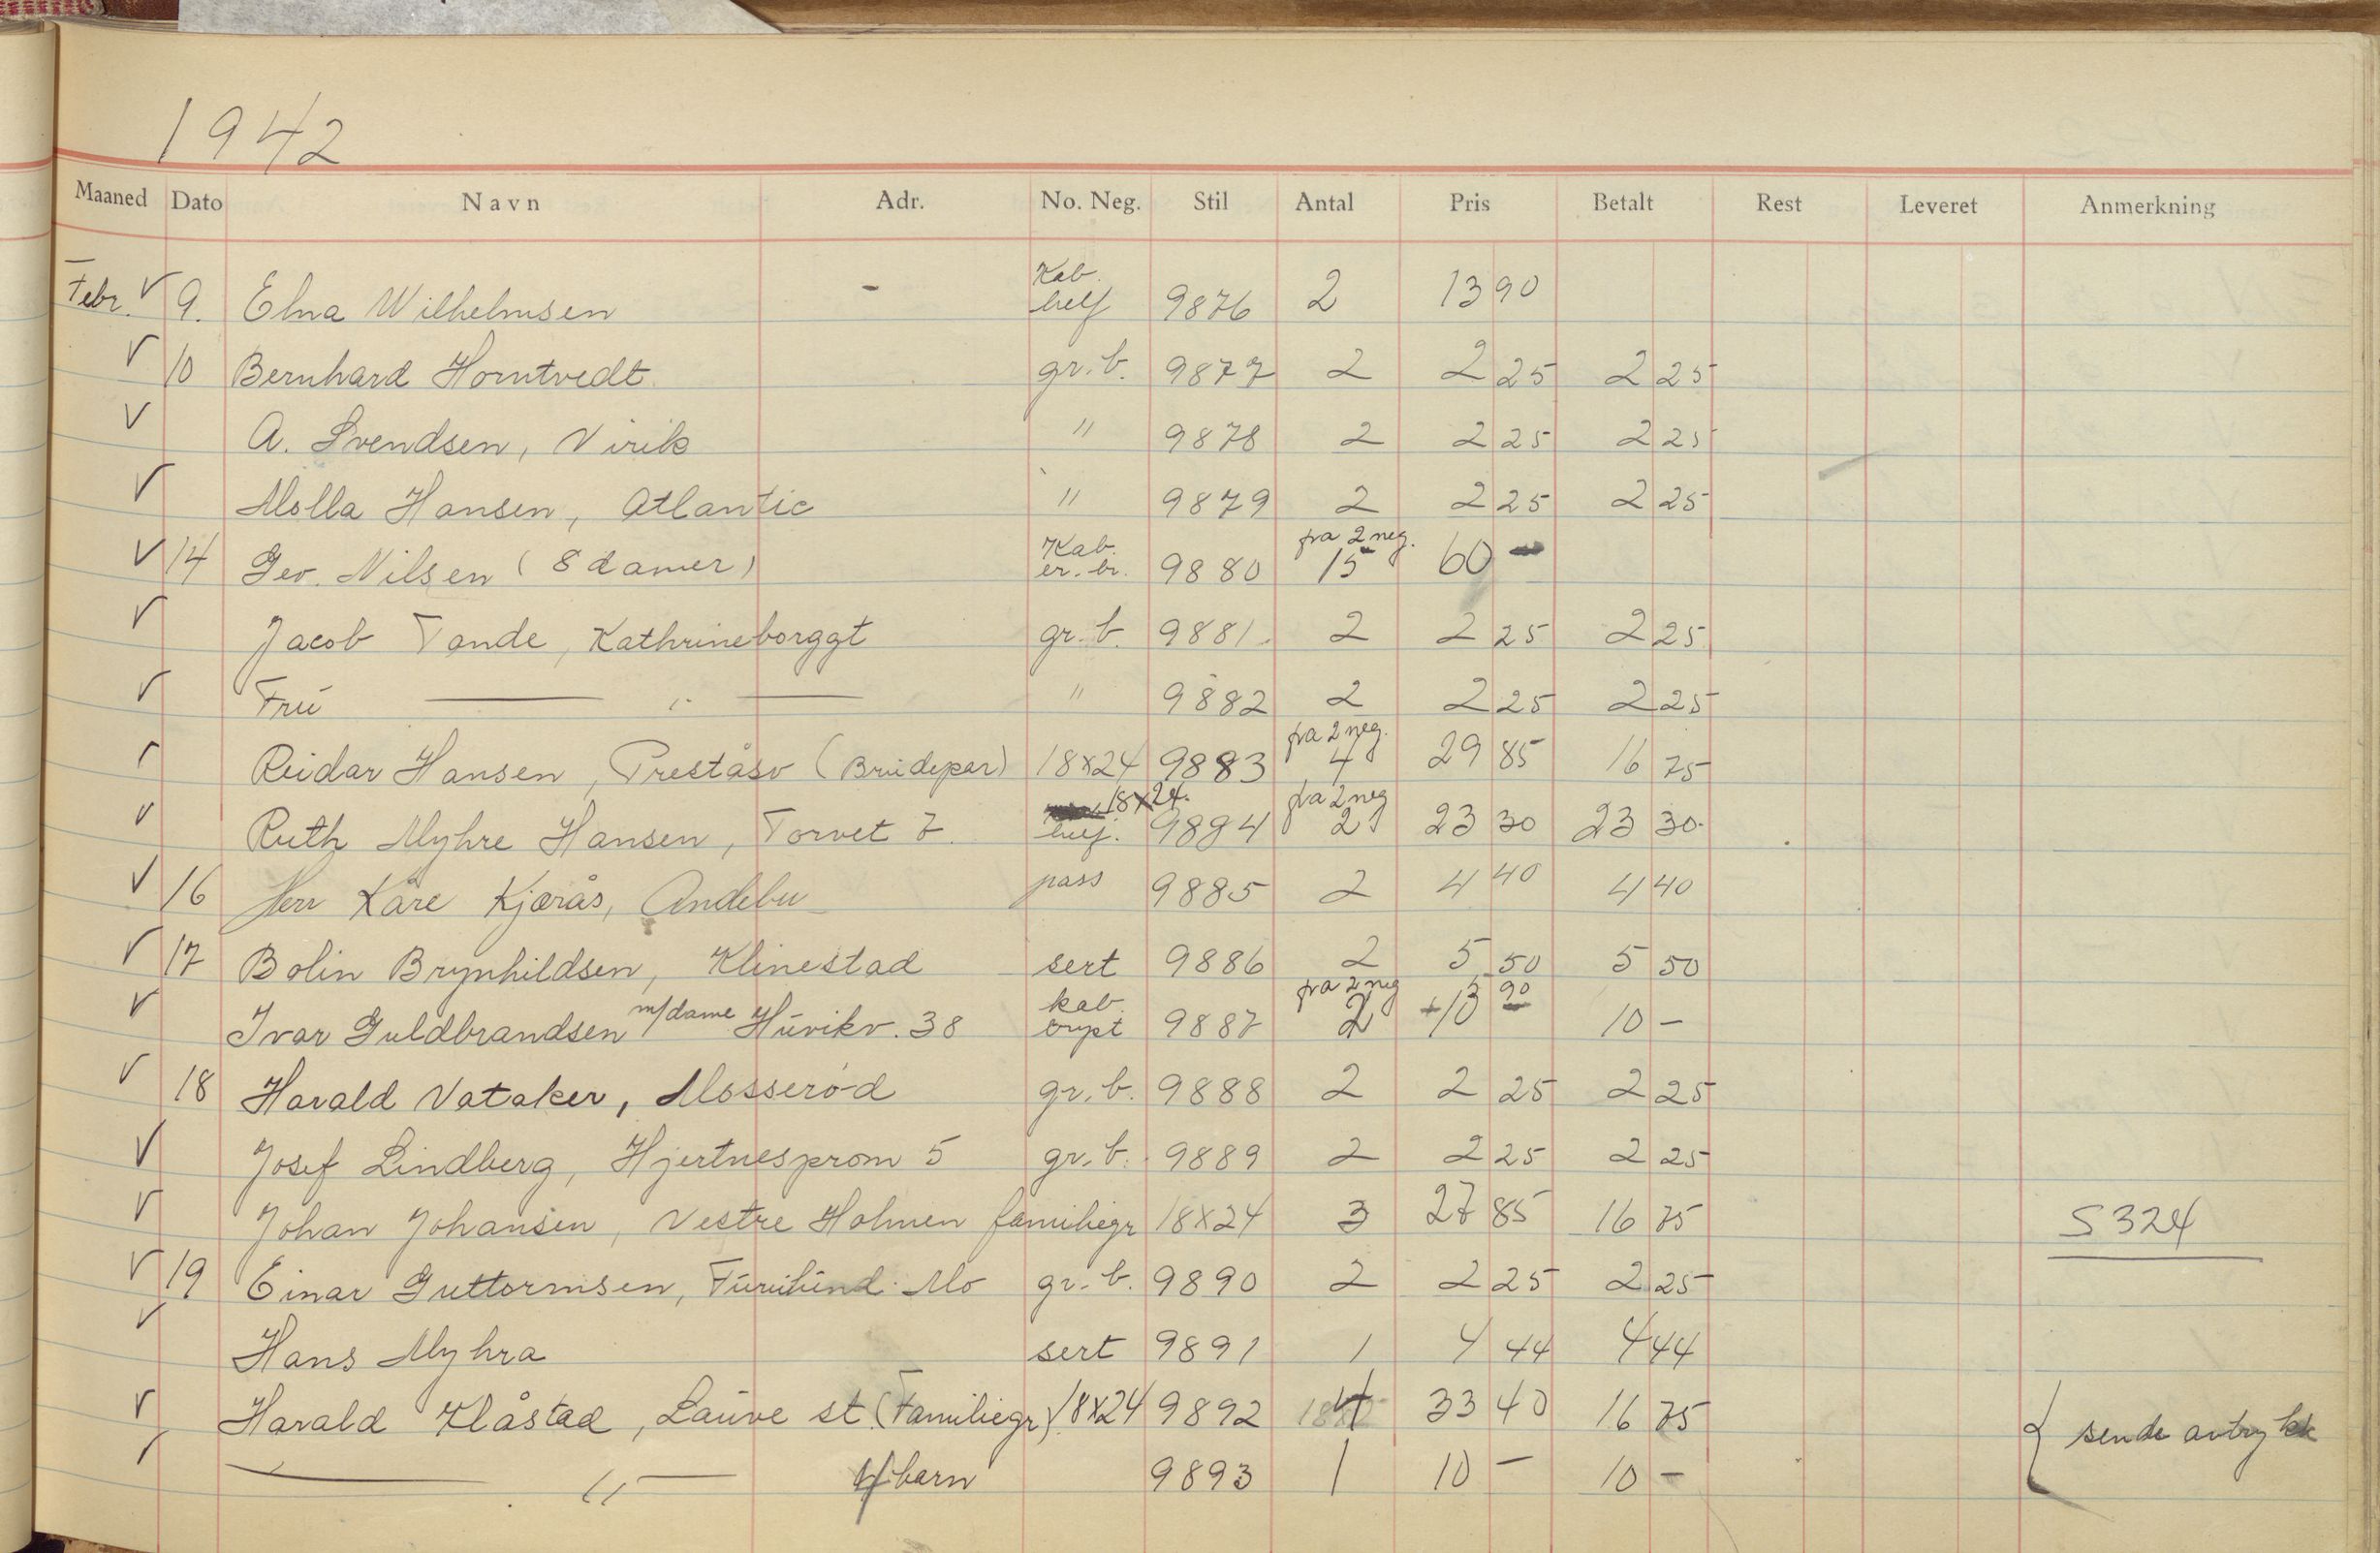 1942
Maaned Dato Navn Adr. No. Neg. Stil Antal Pris Betalt Rest Leveret Anmerkning
Febr. √ 9. Elna Wilhelmsen - Kab. helf 9876 2 13 90
√ 10 Bernhard Horntvedt gr. b. 9877 2 2 25 2 25
√ A. Svendsen, Virik " 9878 2 2 25 2 25
√ Molla Hansen, Atlantic " 9879 2 2 25 2 25
√ 14 Gev. Nilsen (8 damer) Kab. br. 9880 fra 2 neg. 15 60 -
√ Jacob Tande, Kathrineborggt gr. b. 9881. 2 2 25 2 25
√ Fru — " — " 9882 2 2 25 2 25
√ Reidar Hansen, Preståsv (Brudepar) 18x24 9883 fra 2 neg. 4 29 85 16 75
√ Ruth Myhre Hansen, Torvet 7. 18x24. helf. 9884 fra 2 neg 2 23 30 23 30.
√ 16 Herr Kåre Kjærås, Andebu pass 9885 2 4 40 4 40
√ 17 Bolin Brynhildsen, Klinestad sert 9886 2 5 50 5 50
√ Ivar Guldbrandsen m/dame Huvikv. 38 kab. 9887 fra 2 neg 2 13 90 10 -
√ 18 Harald Vataker, Mosserød gr. b. 9888 2 2 25 2 25
√ Josef Lindberg, Hjertnesprom 5 gr. b. 9889 2 2 25 2 25
√ Johan Johansen, Vestre Holmen familiegr 18x24 3 27 85 16 75 S324
√ 19 Einar Guttormsen, Furulund Mo gr. b. 9890 2 2 25 2 25
√ Hans Myhra sert 9891 1 4 44 4 44
√ Harald Klåstad, Lauve st. (Familiegr) 18x24 9892 4 33 40 16 75
√ — " — 4 barn 9893 1 10 - 10 - { sende avtrykk